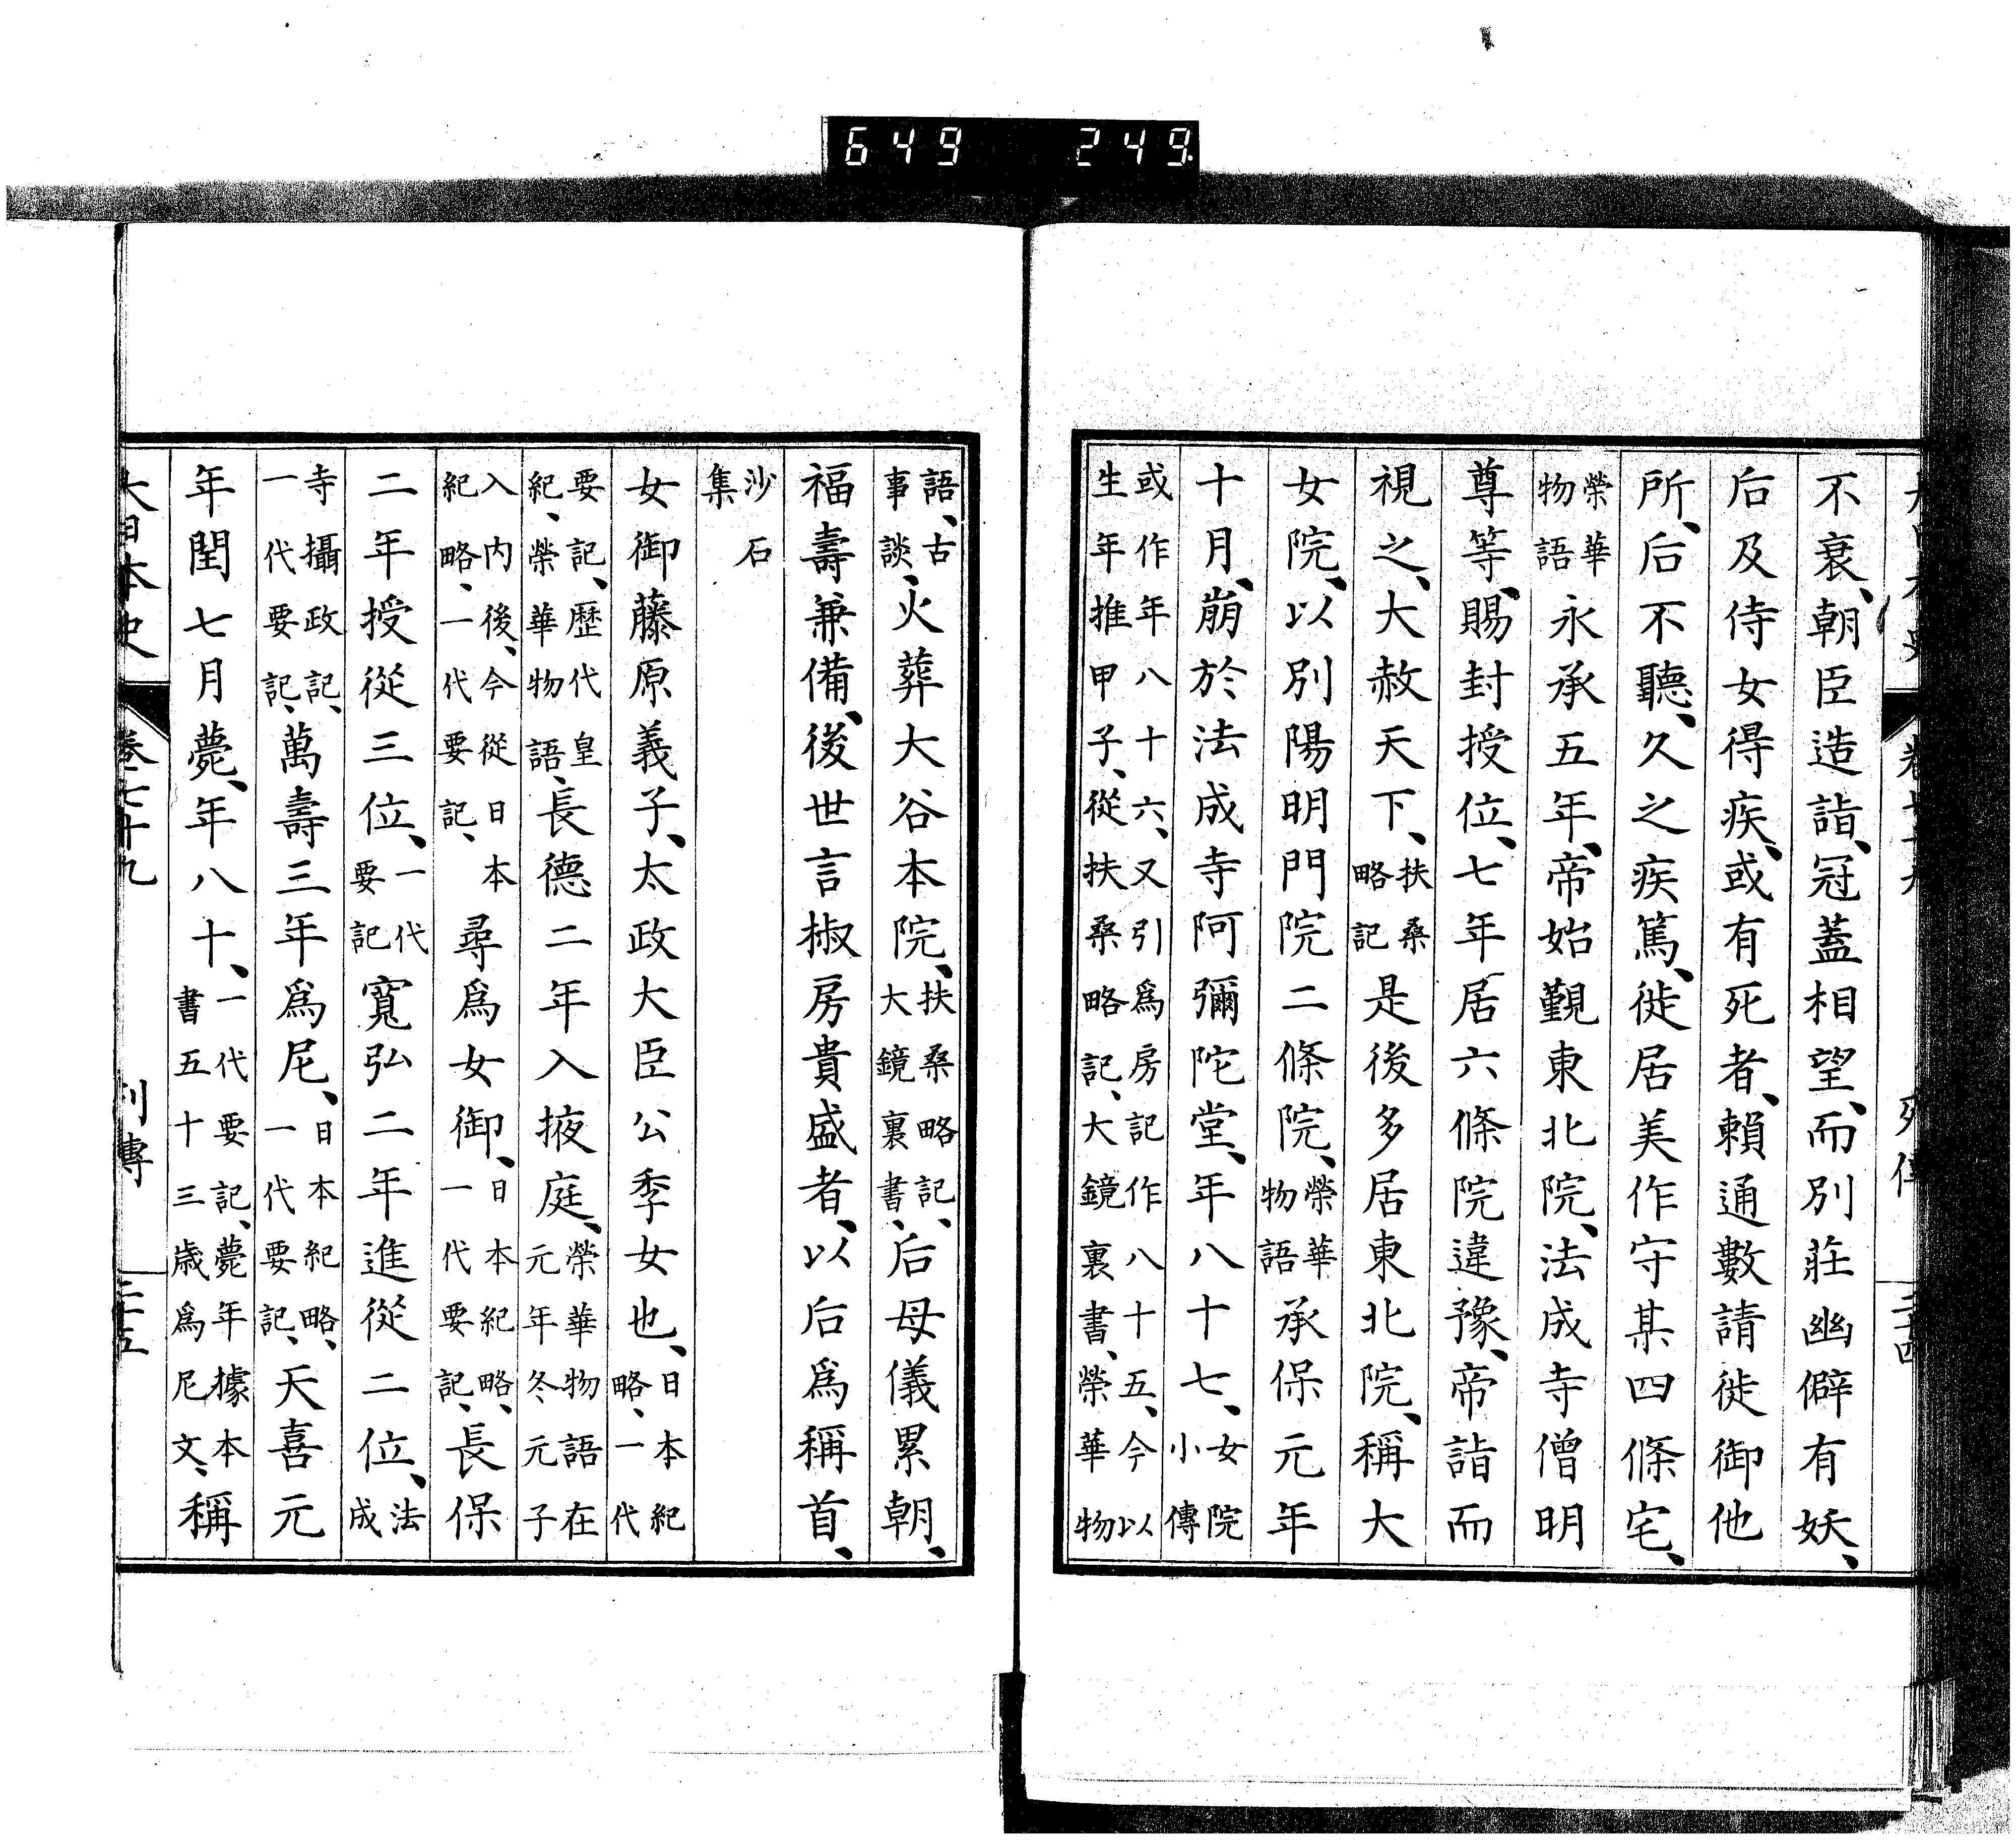 649 249
不衰、朝臣造詣、冠蓋相望、而別莊幽僻有妖、
后及侍女得疾、或有死者、賴通數請徙御他
所、后不聽、久之疾篤、徙居美作守某四條宅、
榮華物語永承五年、帝始覲東北院、法成寺僧明
尊等、賜封授位、七年居六條院違豫、帝詣而
視之、大赦天下、扶桑略記是後多居東北院、稱大
女院、以別陽明門院二條院、榮華物語承保元年
十月、崩於法成寺阿彌陀堂、年八十七、女院小傳
或作年八十六、又引爲房記作八十五、今以
生年推甲子、從扶桑略記、大鏡裏書、榮華物
語、古事談、火葬大谷本院、扶桑略記、大鏡裏書、后母儀累朝、
福壽兼備、後世言椒房貴盛者、以后爲稱首、
沙石集
女御藤原義子、太政大臣公季女也、日本紀略、一代
要記、歷代皇紀、榮華物語、長德二年入掖庭、榮華物語在元年冬、元子
入內後、今從日本紀略、一代要記、尋爲女御、日本紀略、一代要記、長保
二年授從三位、一代要記寬弘二年進從二位、法成
寺攝政記、一代要記、萬壽三年爲尼、日本紀略、一代要記、天喜元
年閏七月薨、年八十、一代要記、薨年據本書五十三歳爲尼文、稱
大日本史 卷七十九 列傳 二十五